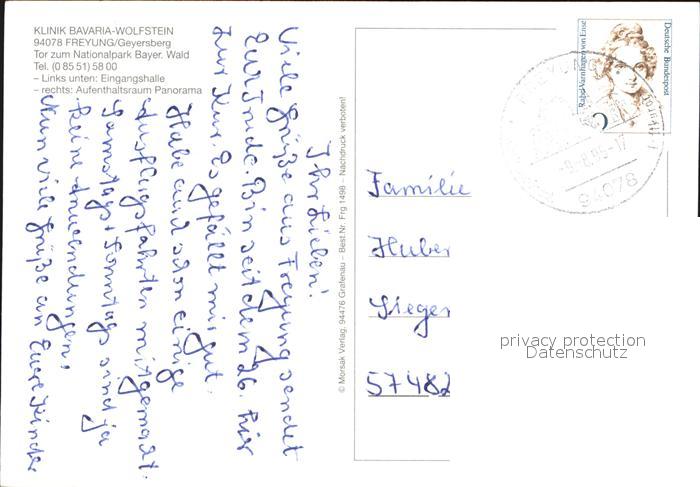 KLINIK BAVARIA-WOLFSTEIN
94078 FREYUNG/Geyersberg
Tor zum Nationalpark Bayer. Wald
Tel. (0 85 51) 58 00
– Links unten: Eingangshalle
– rechts: Aufenthaltsraum Panorama
Ihr Lieben!
Viele Grüße aus Freyung sendet
Euch Trude. Bin seit dem 26. hier
zur Kur. Es gefällt mir gut.
Habe auch schon einige
Ausflugsfahrten mitgemacht.
Samstags + Sonntags sind ja
keine Anwendungen.
Nun viele Grüße an Eure Kinder
© Morsak Verlag, 94476 Grafenau – Best.Nr. Frg 1498 – Nachdruck verboten!
Deutsche Bundespost
Rahel Varnhagen von Ense
FREYUNG
-8.8.95-17
94078
Familie
Huber
Sieger
57482
privacy protection
Datenschutz